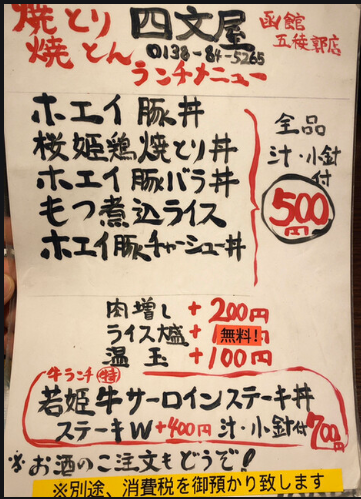 焼とり
焼とん
四文屋
函館
五稜郭店
0138-84-5265
ランチメニュー
ホエイ豚丼
桜姫鶏焼とり丼
ホエイ豚バラ丼
もつ煮込ライス
ホエイ豚チャーシュー丼
全品
汁・小鉢
付
500
円
肉増し +200円
ライス大盛 + 無料!
温玉 +100円
牛ランチ 特
若姫牛サーロインステーキ丼
ステーキW +400円 汁・小鉢付 700円
※お酒のご注文もどうぞ!
※別途、消費税を御預かり致します